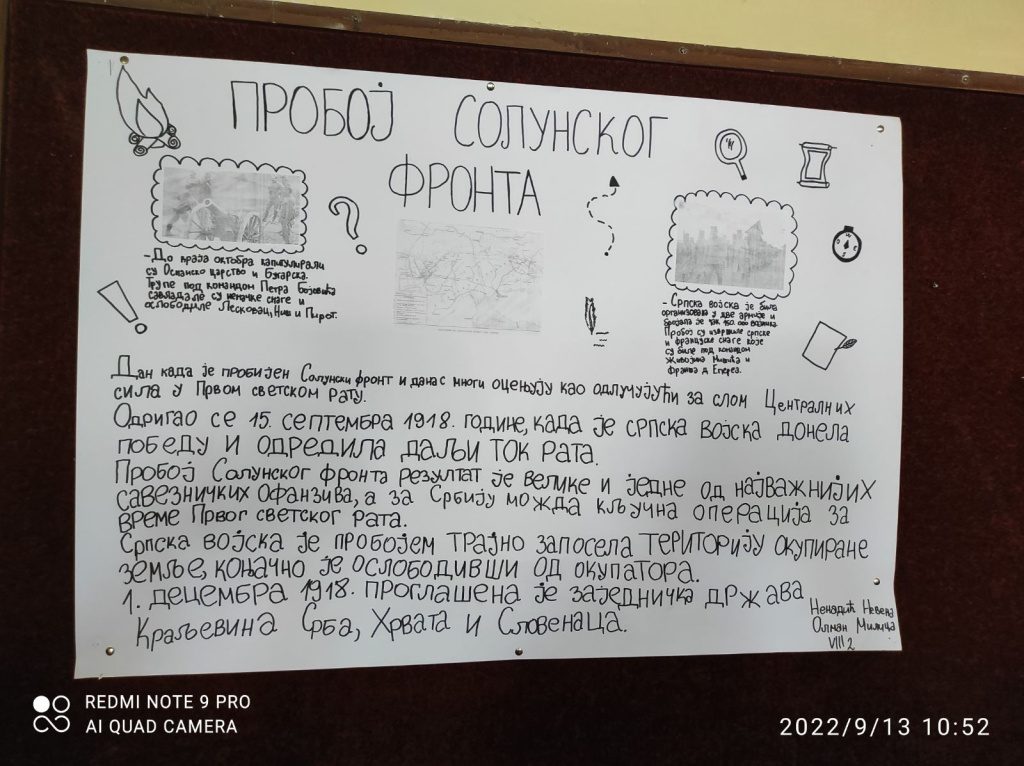 ПРОБОЈ СОЛУНСКОГ
ФРОНТА
- До краја октобра капитулирали
су Османско царство и Бугарска.
Трупе под командом Петра Бојовића
савладале су немачке снаге и
ослободиле Лесковац, Ниш и Пирот.
- Српска војска је била
организована у две армије и
бројала је чак 150.000 војника.
Пробој су извршиле српске
и француске снаге које
су биле под командом
Живојина Мишића и
Франша д Епереа.
Дан када је пробијен Солунски фронт и данас многи оцењују као одлучујући за слом Централних
сила у Првом светском рату.
Одригао се 15. септембра 1918. године, када је српска војска донела
победу и одредила даљи ток рата.
Пробој Солунског фронта резултат је велике и једне од најважнијих
савезничких офанзива, а за Србију можда кључна операција за
време Првог светског рата.
Српска војска је пробојем трајно запосела територију окупиране
земље, коначно је ослободивши од окупатора.
1. децембра 1918. проглашена је заједничка држава
Краљевина Срба, Хрвата и Словенаца.
Ненадић Невена
Олман Милица
VIII2
REDMI NOTE 9 PRO
AI QUAD CAMERA
2022/9/13 10:52